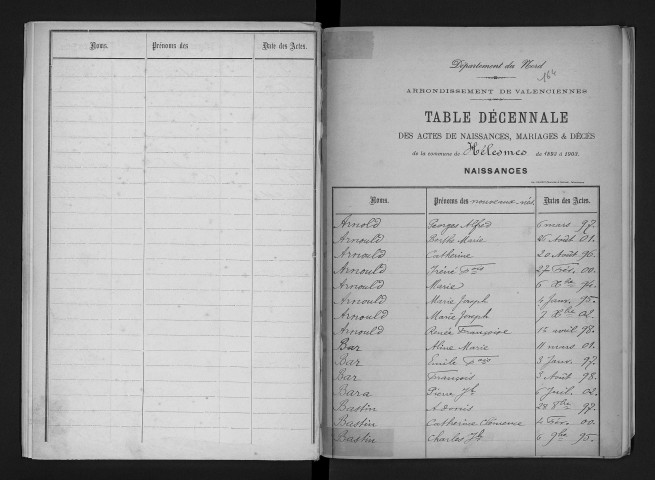 Noms. Prénoms des Date des Actes.
Département du Nord
164
ARRONDISSEMENT DE VALENCIENNES
TABLE DÉCENNALE
DES ACTES DE NAISSANCES, MARIAGES & DÉCÈS
de la commune de Hélesmes de 1893 à 1903.
NAISSANCES
Noms. Prénoms des nouveaux nés Dates des Actes.
Arnold Georges Alfred 6 mars 97.
Arnould Berthe Marie 26 Août 01.
Arnould Catherine 20 Août 96.
Arnould Iréné 27 Fév. 00.
Arnould Marie 6 Xbre 94.
Arnould Marie Joseph 4 Janv. 95.
Arnould Marie Joseph 7 Xbre 02.
Arnould Renée Françoise 12 avril 98.
Bar Aline Marie 11 mars 01.
Bar Emile 3 Janv. 97.
Bar François 2 Août 98.
Bara Pierre Jh 6 Juil. 02.
Bastin Adonis 28 8bre 97.
Bastin Catherine Clémence 4 Fév. 00.
Bastin Charles Jh 6 9bre 95.